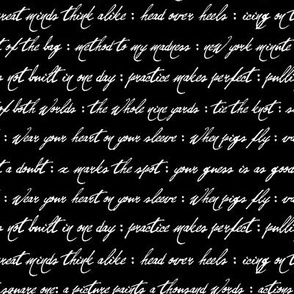 reat minds think alike : head over heels : icing on t
t of the bag : method to my madness : new york minute
s not built in one day : practice makes perfect : pulli
of both worlds : the whole nine yards : tie the knot : s
: wear your heart on your sleeve : when pigs fly : wa
t a doubt : x marks the spot : your guess is as good
: wear your heart on your sleeve : when pigs fly : wa
s not built in one day : practice makes perfect : pulli
reat minds think alike : head over heels : icing on t
square one : a picture paints a thousand words : actions